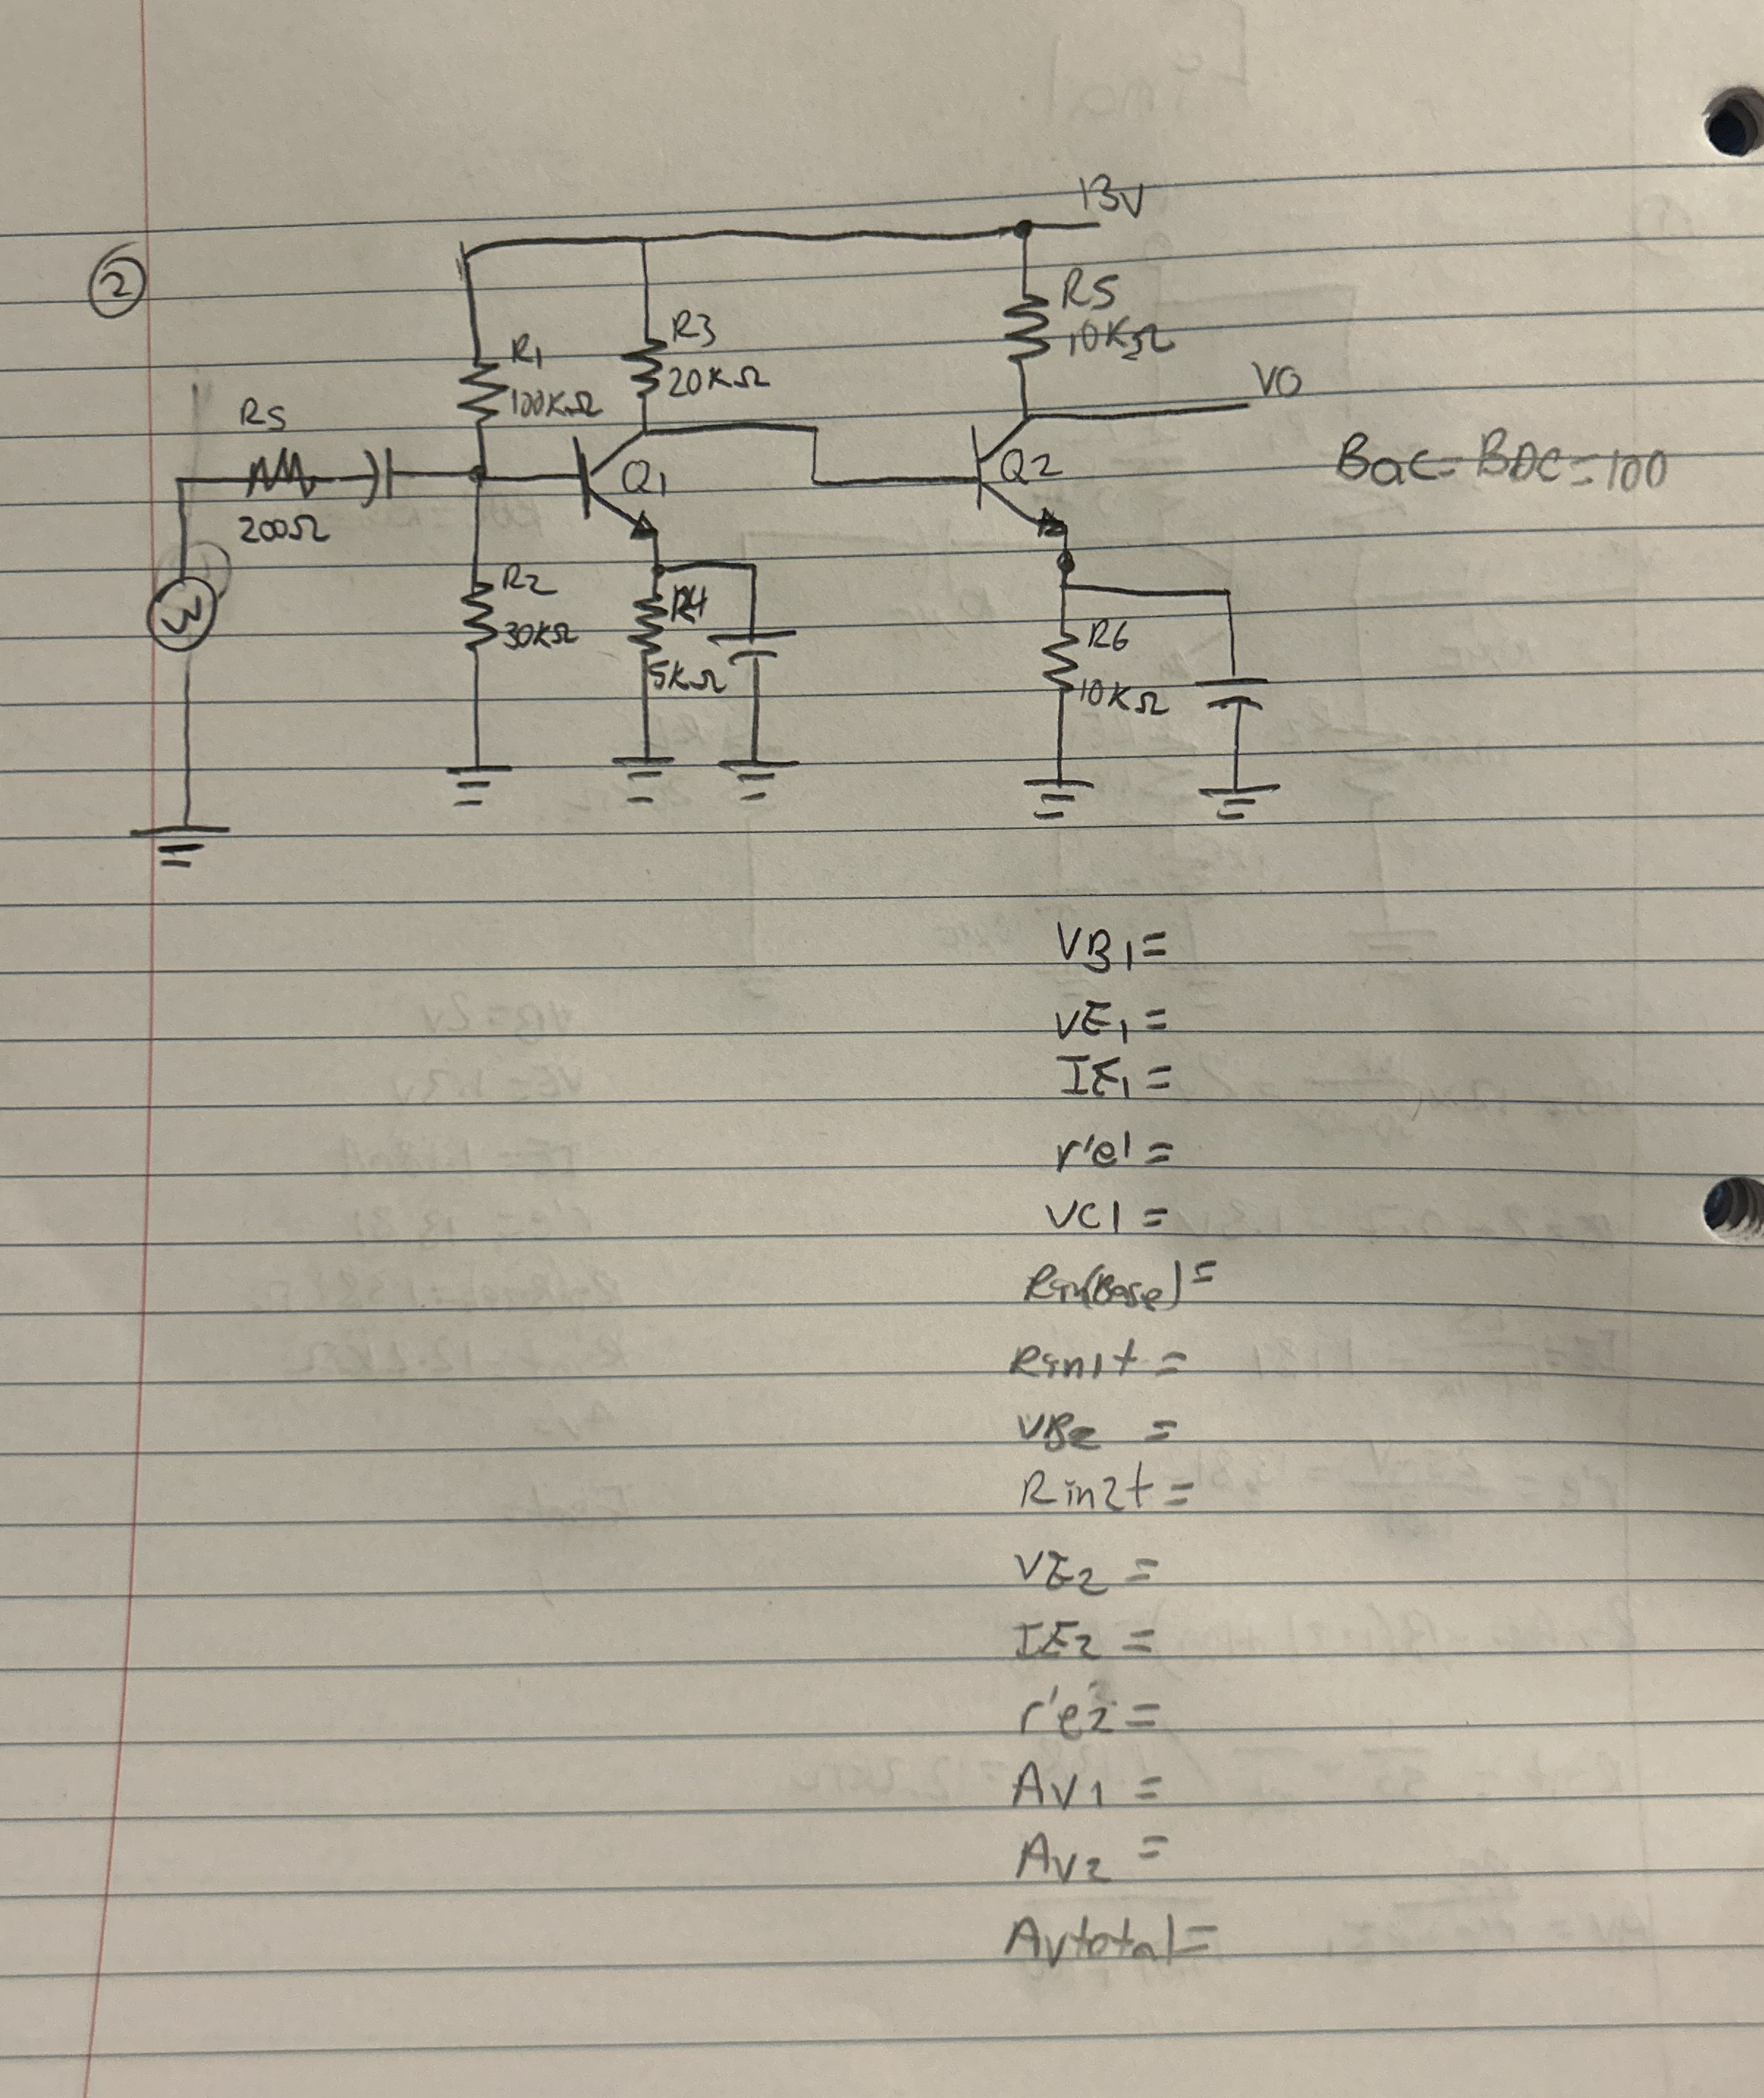 ②
13V
R5
10KΩ
R3
20KΩ
R1
100KΩ
VO
RS
200Ω
Q1
Q2
Bac=BDC=100
R2
30KΩ
R4
5KΩ
R6
10KΩ
VB1=
VE1=
IE1=
r'e1=
VC1=
Rin(Base)=
Rin1t=
VB2=
Rin2t=
VE2=
IE2=
r'e2=
AV1=
AV2=
AVtotal=